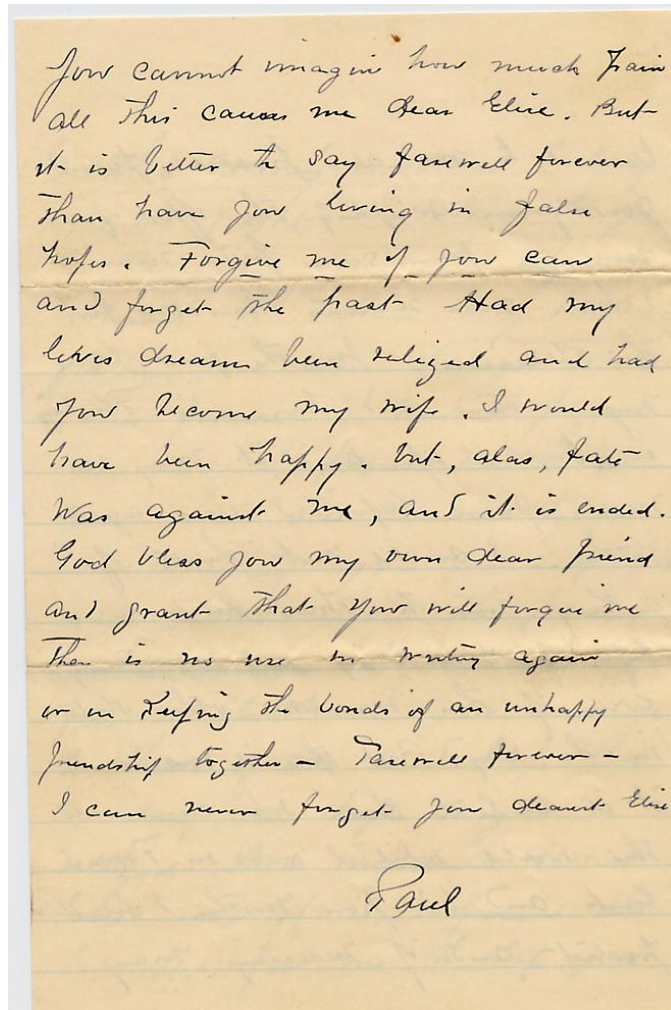 You cannot imagin how much pain
all this causes me dear Elise. But
it is better to say farewell forever
than have you living in false
hopes. Forgive me if you can
and forget the past Had my
lives dream been reliezed and had
you become my wife. I would
have been happy. but, alas, fate
was against me, and it is ended.
God bless you my own dear friend
and grant that you will forgive me
There is no use in writing again
or in keeping the bonds of an unhappy
friendship together – Farewell forever –
I can never forget you dearest Elise
Paul